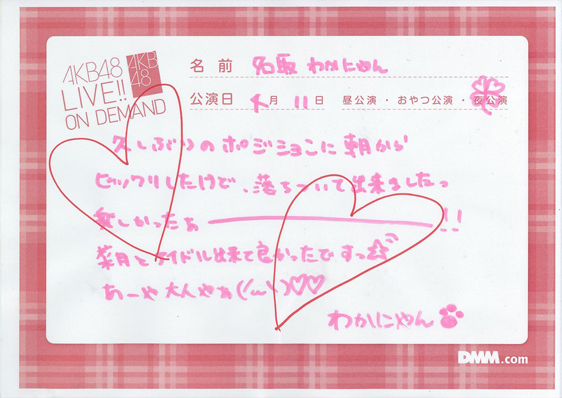 AKB48
LIVE!!
ON DEMAND
AKB
48
名前 名取 わかにゃん
公演日 月 11日 昼公演・おやつ公演・夜公演
久しぶりのポジションに朝から
ビックリしたけど、落ちついて出来ましたっ
楽しかったぁ ー !!
菜月とアイドル出来て良かったですっ☆
あーや大人やね(
わかにゃん
DMM.com